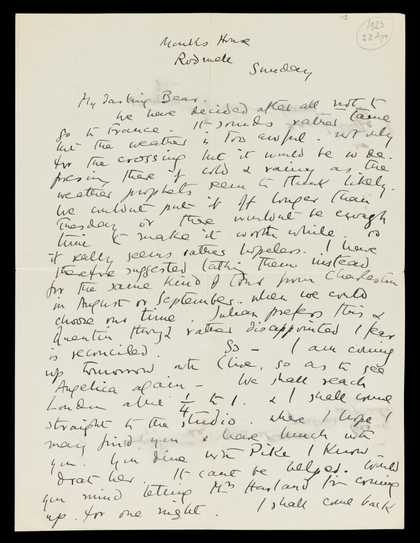 1923
22 Apr
Monks House
Rodmell
Sunday
My darling Bear.
We have decided after all not to
go to France. It sounds rather tame
but the weather is too awful. not only
for the crossing but it would be so de-
pressing there if cold & raining as the
weather prophets seem to think likely.
We couldn't put it off longer than
Tuesday or there wouldn't be enough
time to make it worth while so
it really seems rather hopeless. I have
therefore suggested taking them instead
for the same kind of tour from Charleston
in August or September. when we could
choose our time. Julian prefers this &
Quentin though rather disappointed I fear
is reconciled. So - I am coming
up tomorrow with Clive, so as to see
Angelica again - We shall reach
London about 1/4 to 1. & I shall come
straight to the studio. where I hope I
may find you & have lunch with
you. You dine with Pike I know -
Drat her. It cant be helped. Would
you mind telling Mrs Harland I'm coming
up. for one night. I shall come back